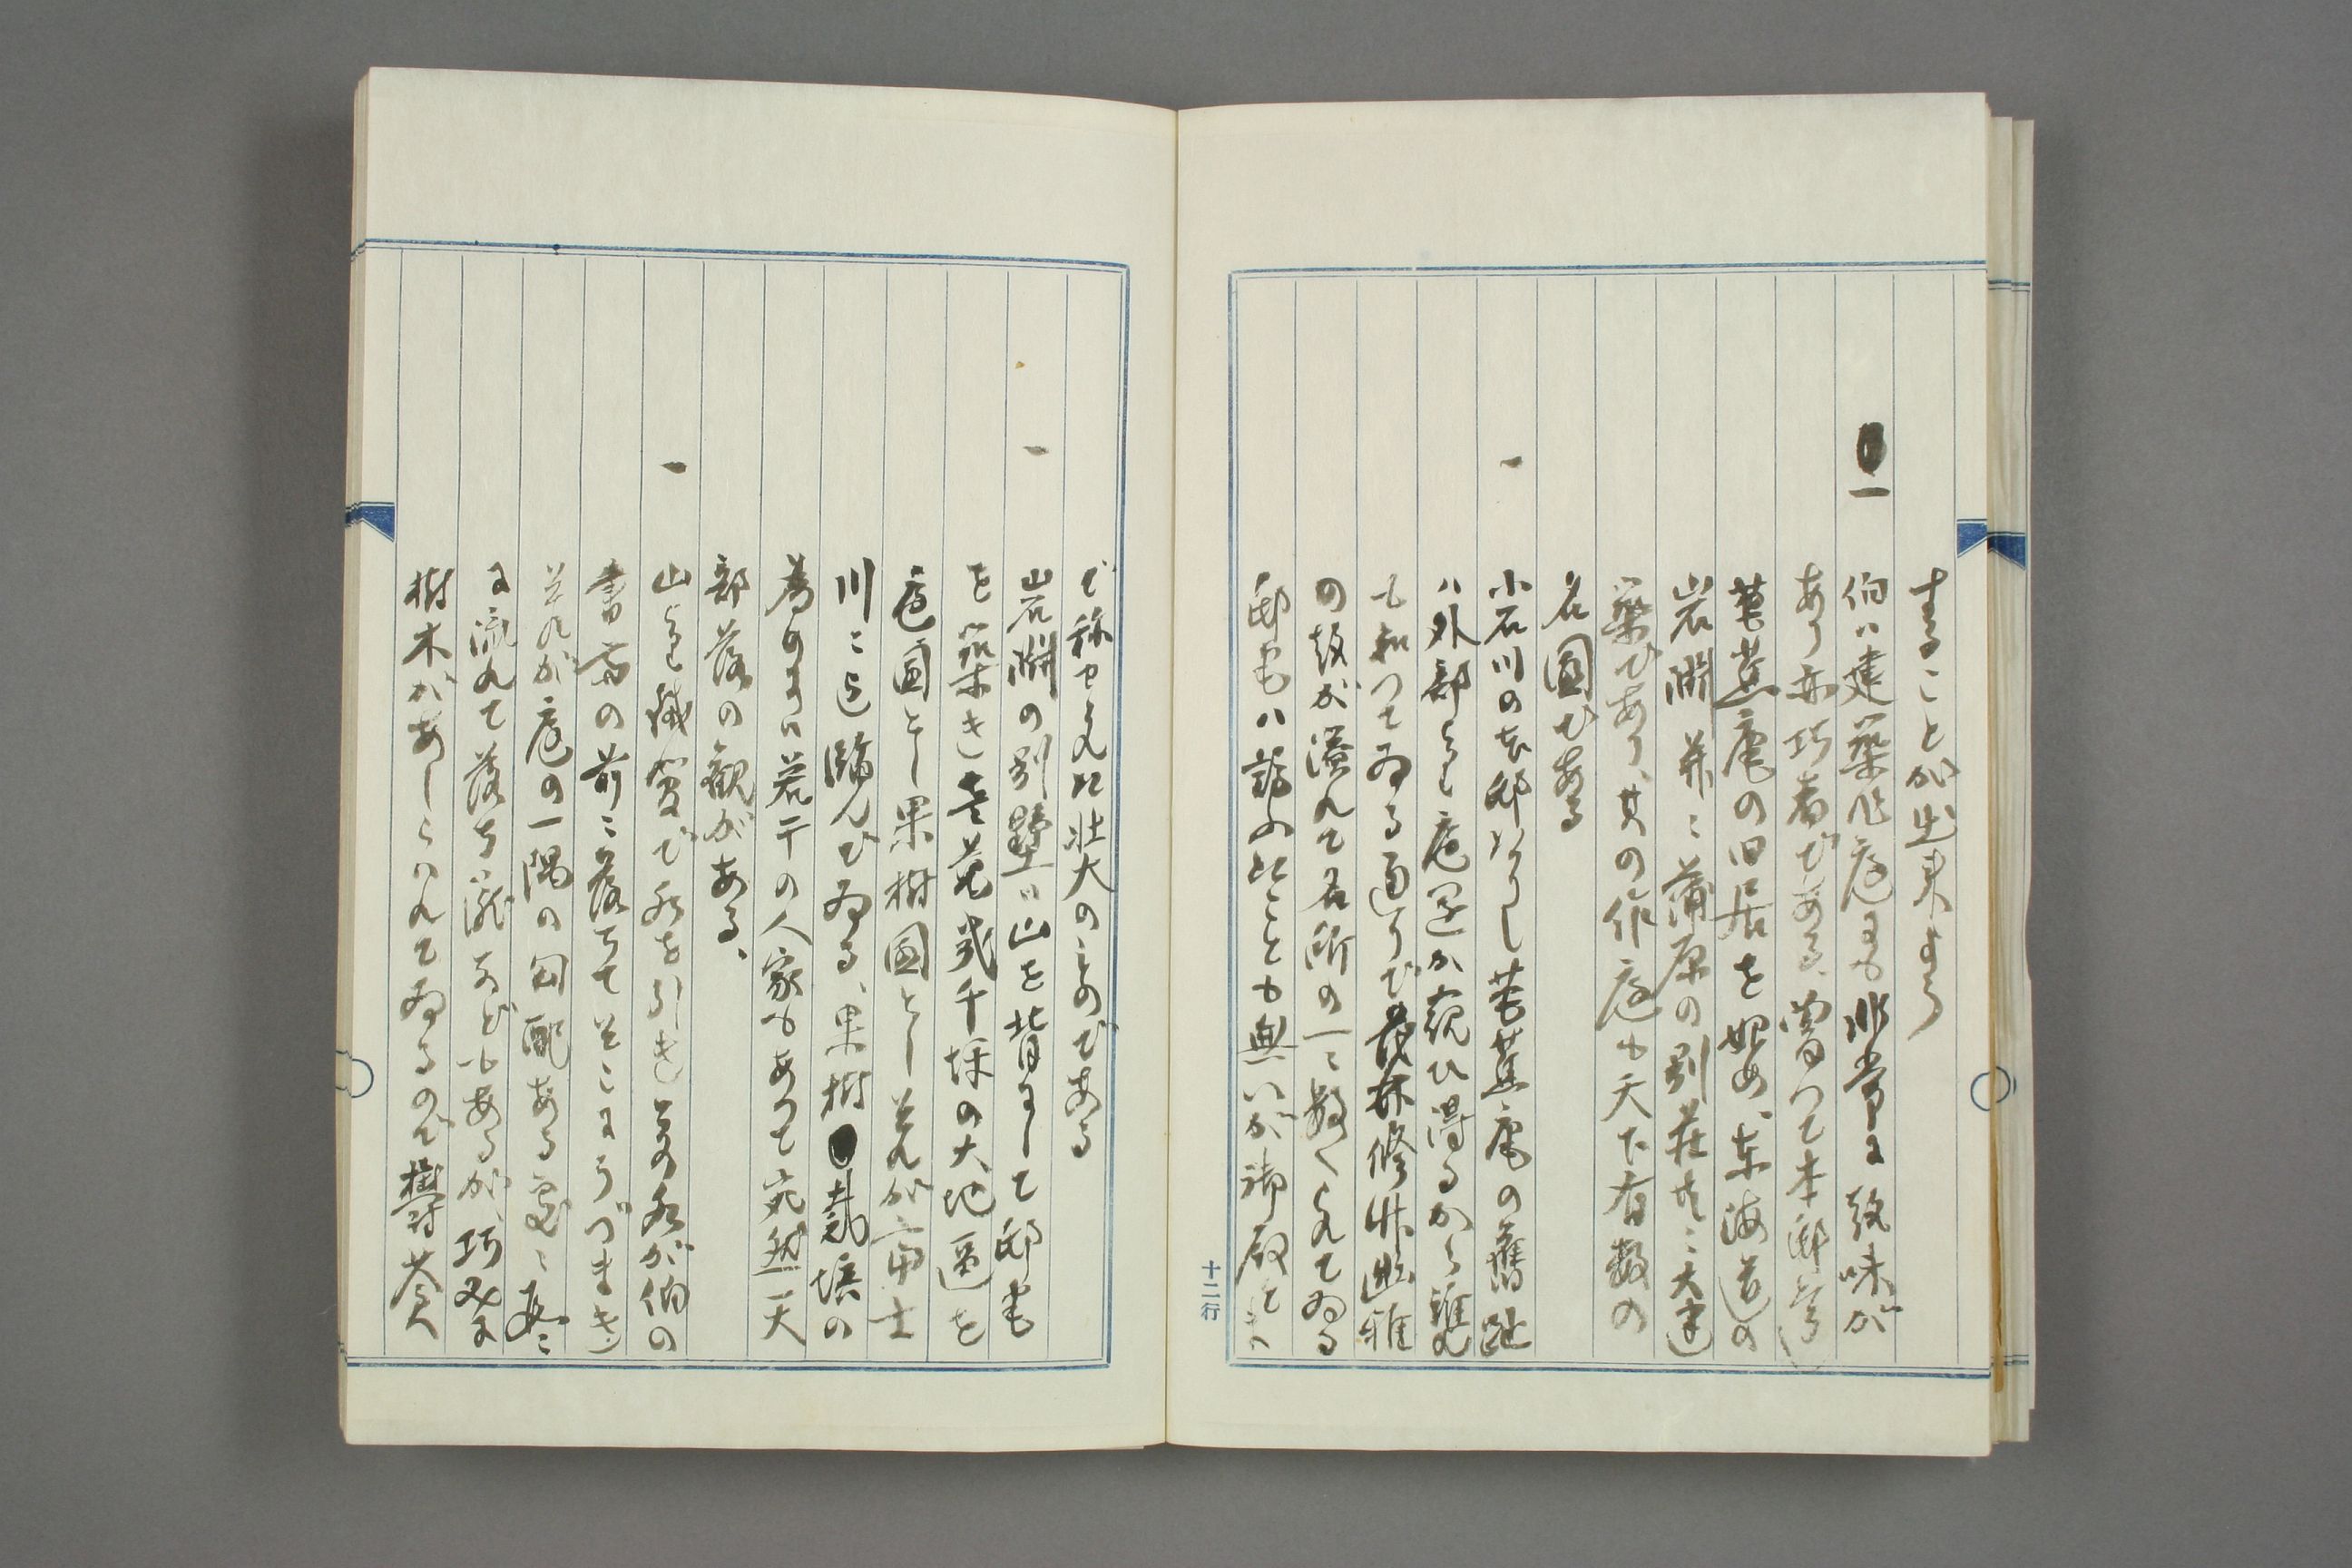 することが出来よう
一 伯は建築作庭にも非常に趣味が
あり亦巧者である、嘗つて本邸
芭蕉庵の旧居を始め、東海道の
岩淵並に蒲原の別荘共に大建
築であり、其の作庭も天下有数の
名園である
一 小石川の本邸は芭蕉庵の舊趾
ハ外部より庭園が窺ひ得るから誰も
も知つてゐる通りで 修竹幽雅
の趣が溢れて名所の一に数へられてゐる
邸宅ハ訪ふたことも無いが御殿とまで
十二行
で称せられた壮大のものである
一 岩淵の別墅は山を背にして邸宅
を築き 弐千坪の大地区を
庭園とし果樹園としそれが富士
川に迄臨んでゐる、果樹栽培の
為めには若干の人家もあつて宛然一天
部落の観がある、
一 山より 水を引き其の水が伯の
書斎の前に落ちてそこにうづまき
それが庭の一隅の勾配ある処に
に流れて落ち瀧などもあるが、巧みに
樹木があしらはれてゐるので欝蒼